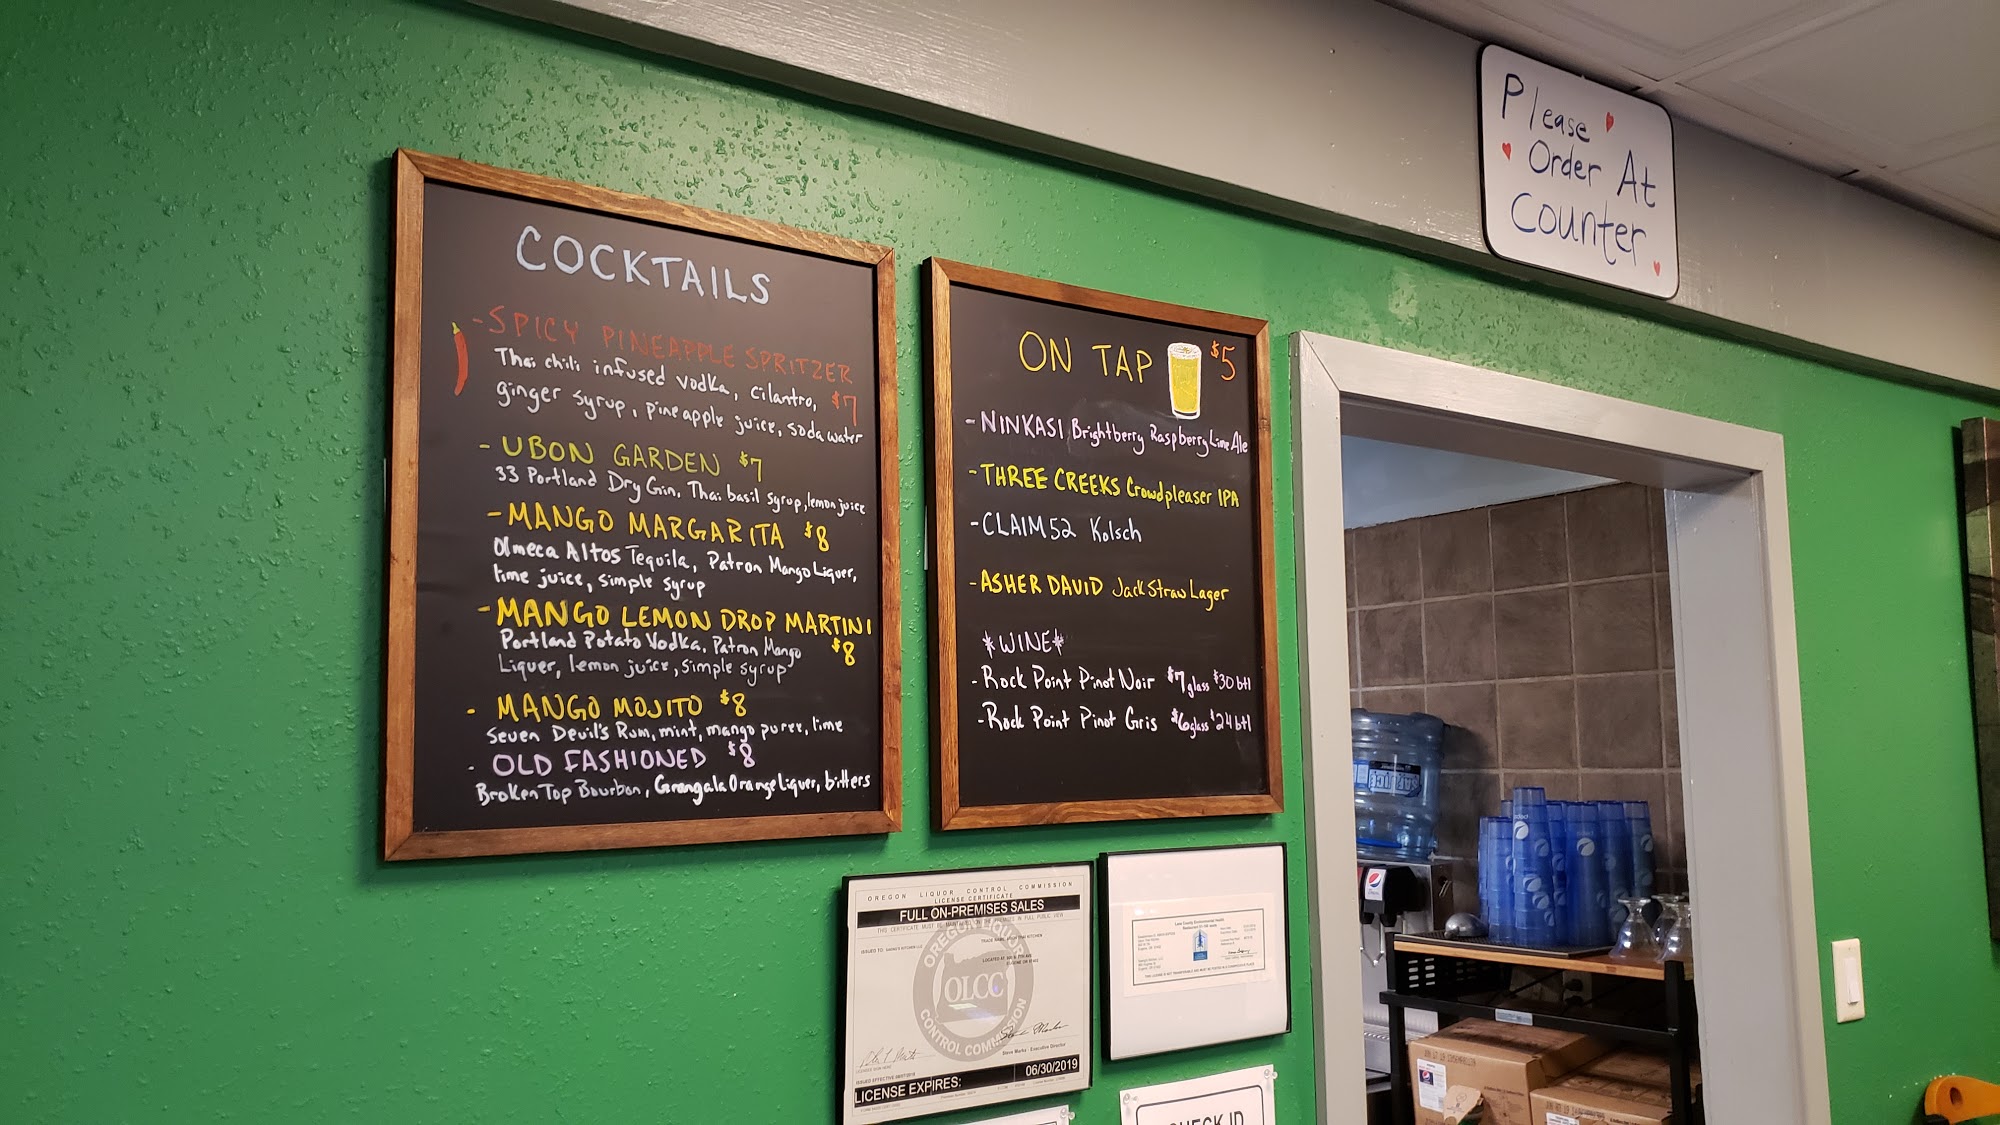 COCKTAILS
-SPICY PINEAPPLE SPRITZER
Thai chili infused vodka, cilantro, $7
ginger syrup, pineapple juice, soda water
-UBON GARDEN $7
33 Portland Dry Gin, Thai basil syrup, lemon juice
-MANGO MARGARITA $8
Olmeca Altos Tequila, Patron Mango Liquer,
lime juice, simple syrup
-MANGO LEMON DROP MARTINI
Portland Potato Vodka, Patron Mango $8
Liquer, lemon juice, simple syrup
- MANGO MOJITO $8
Seven Devil's Rum, mint, mango puree, lime
- OLD FASHIONED $8
Broken Top Bourbon, Grangala Orange Liquer, bitters
ON TAP $5
-NINKASI Brightberry Raspberry Lime Ale
-THREE CREEKS Crowdpleaser IPA
-CLAIM 52 Kolsch
-ASHER DAVID Jack Straw Lager
*WINE*
-Rock Point Pinot Noir $7 glass $30 btl
-Rock Point Pinot Gris $6 glass $24 btl
Please
Order At
Counter
OREGON LIQUOR CONTROL COMMISSION
LICENSE CERTIFICATE
FULL ON-PREMISES SALES
THIS CERTIFICATE MUST BE MAINTAINED ON THE PREMISES IN FULL PUBLIC VIEW
OREGON LIQUOR
OLCC
CONTROL COMMISSION
Steve Marks Executive Director
LICENSE EXPIRES: 06/30/2019
Lane County Environmental Health
CHECK ID
pepsi